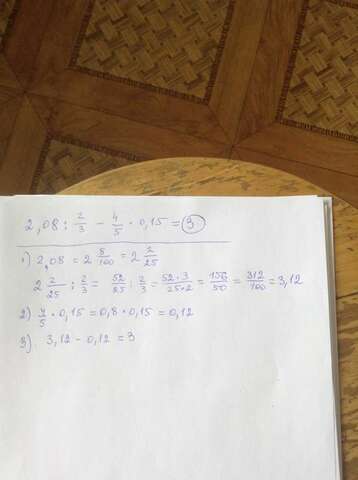 2,08 : 2/3 - 4/5 · 0,15 = 3
1) 2,08 = 2 8/100 = 2 2/25
2 2/25 : 2/3 = 52/25 : 2/3 = 52·3/25·2 = 156/50 = 312/100 = 3,12
2) 4/5 · 0,15 = 0,8 · 0,15 = 0,12
3) 3,12 - 0,12 = 3